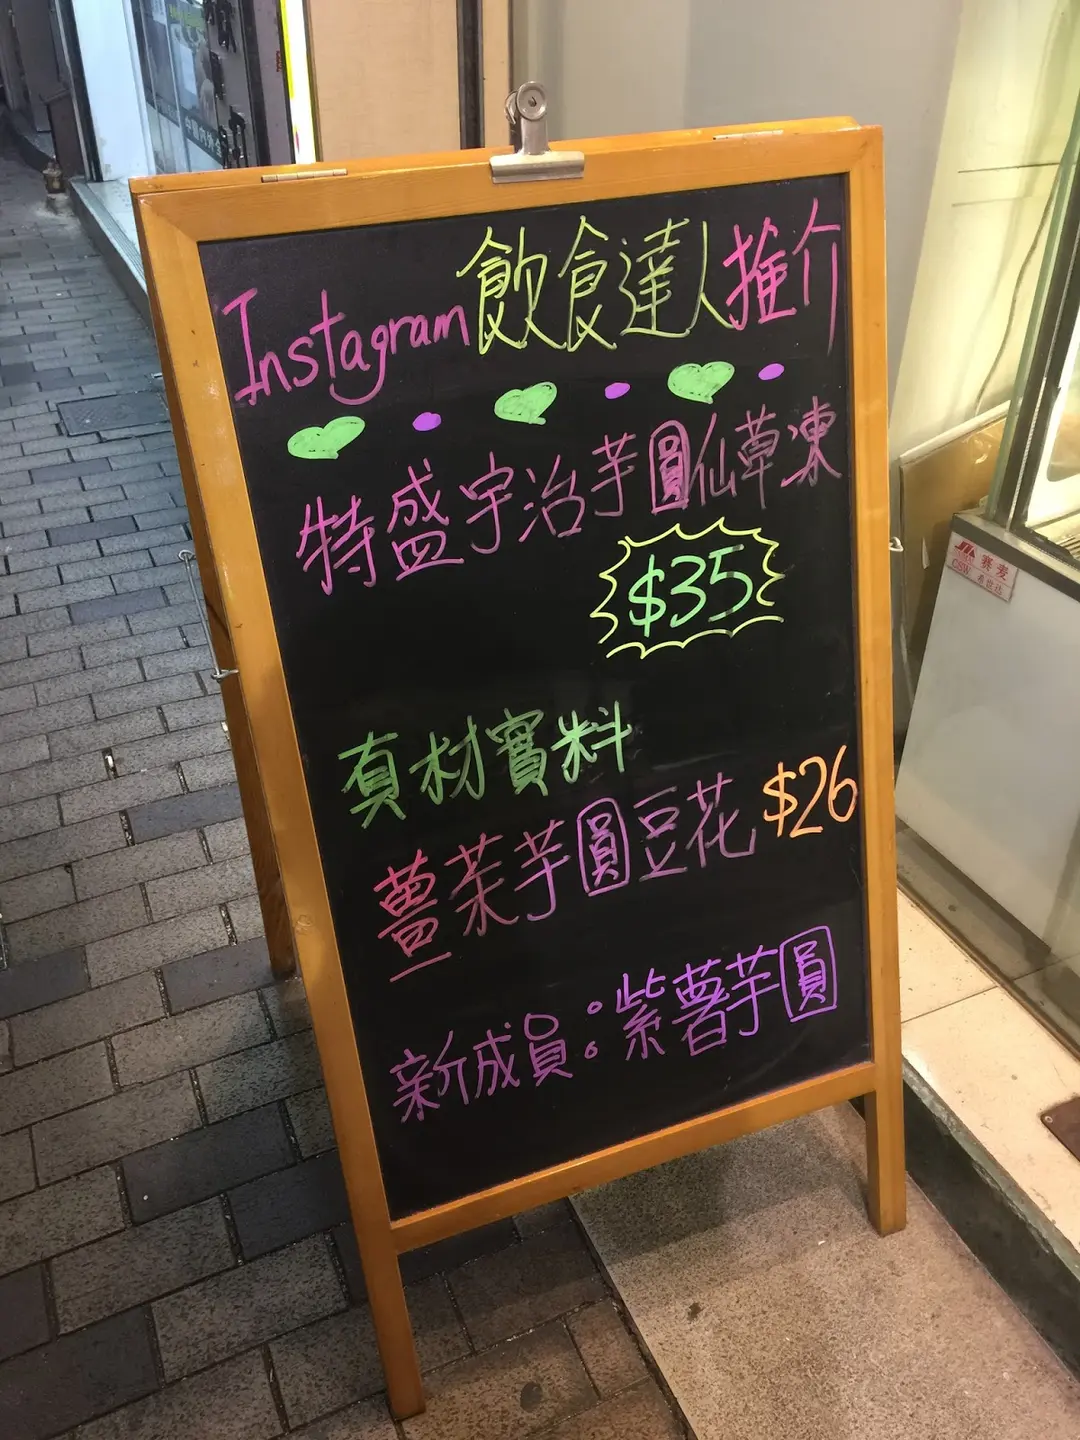 Instagram飲食達人推介
特盛宇治芋圓仙草凍
$35
真材實料
薑茶芋圓豆花 $26
新成員:紫薯芋圓
賽麥
CSW